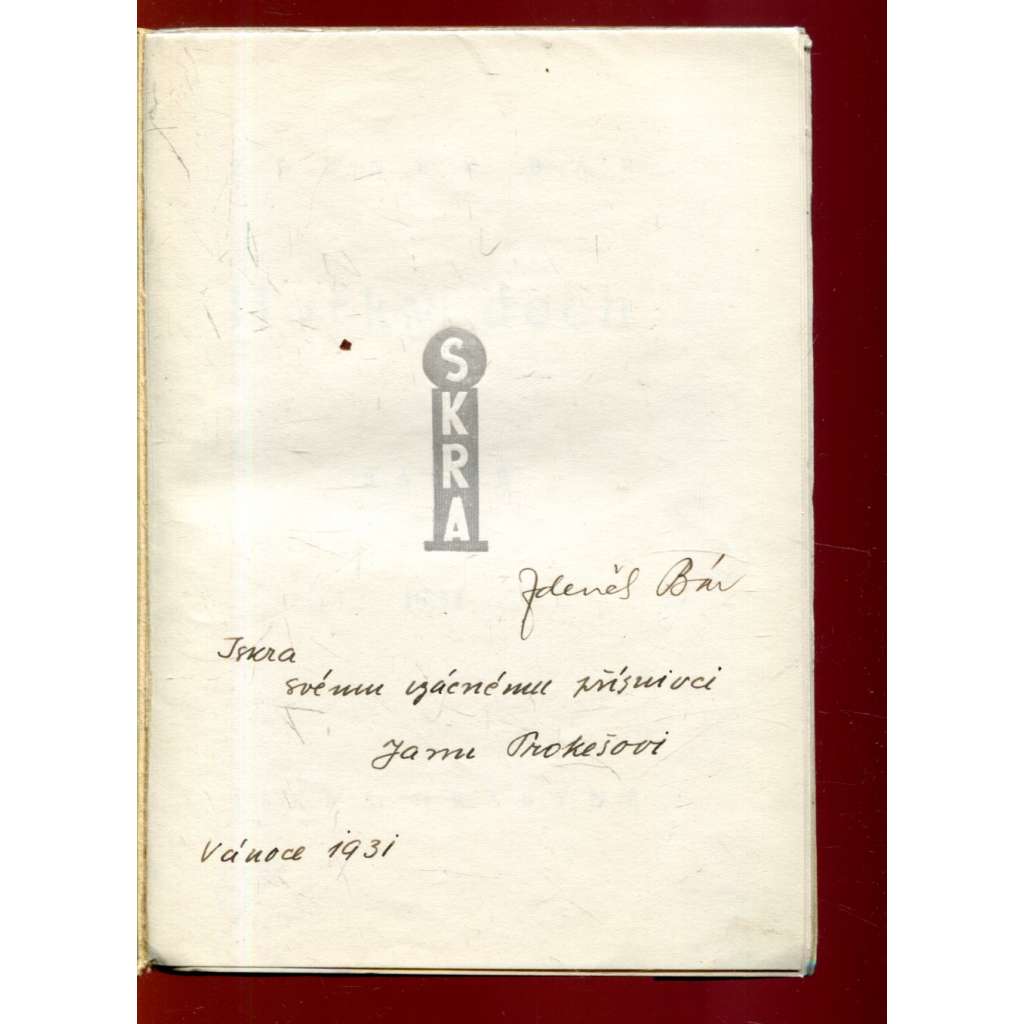 SKRA
Zdeněk Bár
Iskra
svému vzácnému příznivci
Janu Prokešovi
Vánoce 1931